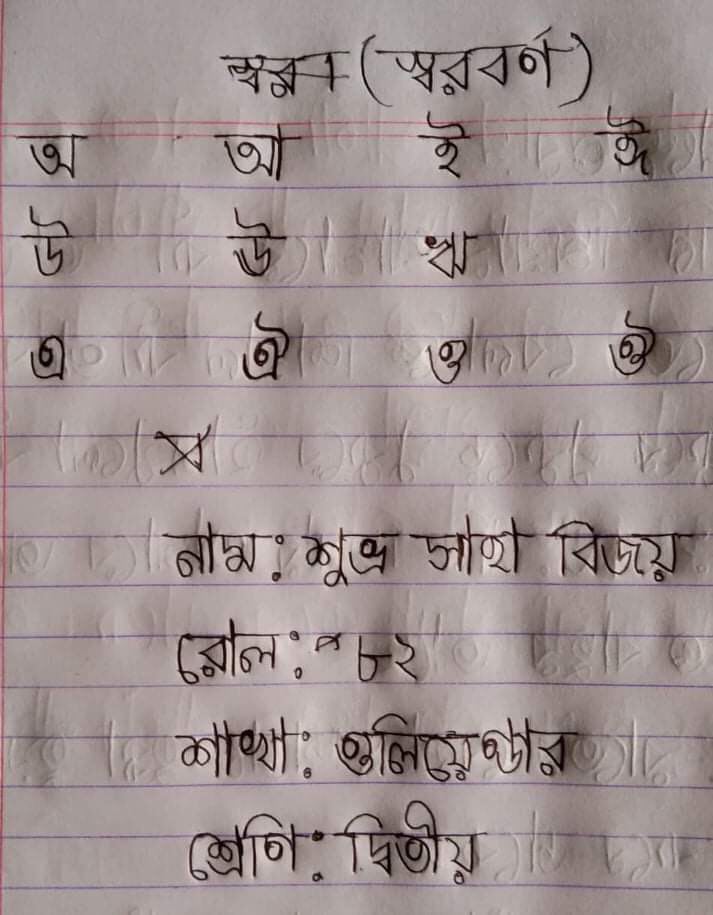 (স্বরবর্ণ)
অ আ ই ঈ
উ ঊ ঋ
এ ঐ ও ঔ
নাম: শুভ্র সাহা বিজয়
রোল: ৮২
শাখা: ওলিয়েন্ডার
শ্রেণি: দ্বিতীয়